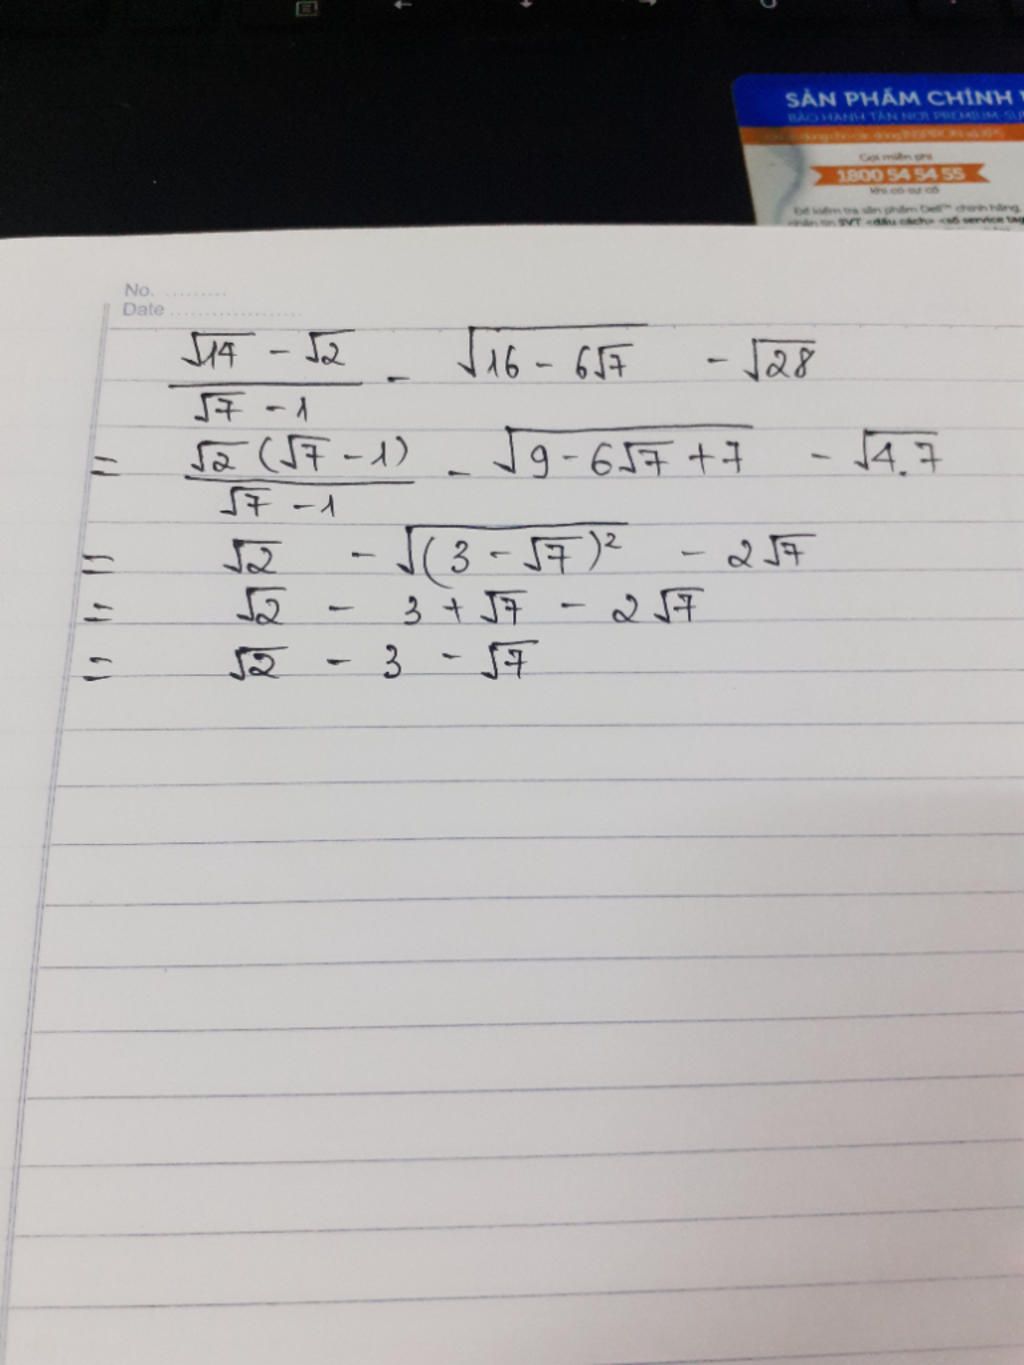 SẢN PHẨM CHÍNH
BẢO HÀNH TẬN NƠI PREMIUM-SU
Gọi miễn phí
1800 54 54 55
khi có sự cố
Để kiểm tra sản phẩm Dell™ chính hãng,
nhắn tin SVT <dấu cách> <số service tag
No. .........
Date ...................
(√14 - √2)/(√7 - 1) - √(16 - 6√7) - √28
= (√2 (√7 - 1))/(√7 - 1) - √(9 - 6√7 + 7) - √(4.7)
= √2 - √((3 - √7)²) - 2√7
= √2 - 3 + √7 - 2√7
= √2 - 3 - √7